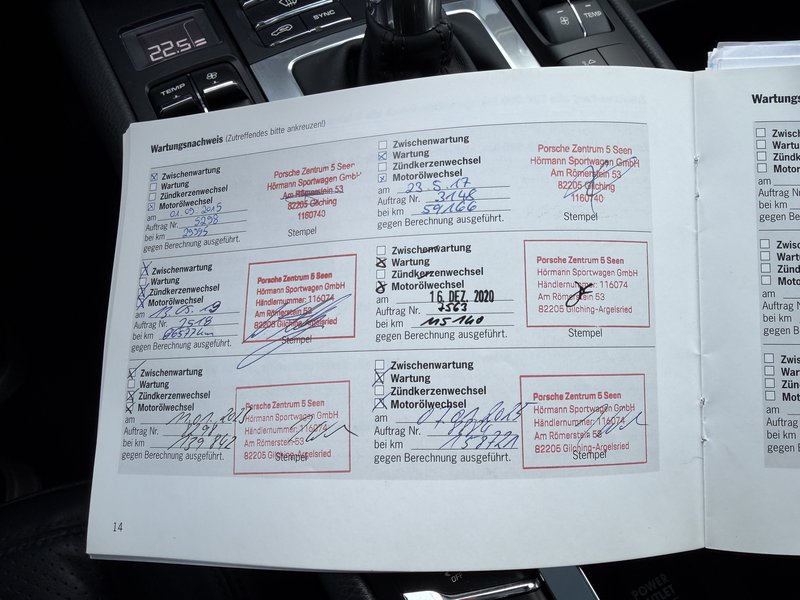 SYNC
22.5
TEMP
TEMP
Wartungsnachweis (Zutreffendes bitte ankreuzen!)
Zwischenwartung
Wartung
Zündkerzenwechsel
Motorölwechsel
am 01.09.2015
Auftrag Nr. 3298
bei km
gegen Berechnung ausgeführt.
Porsche Zentrum 5 Seen
Hörmann Sportwagen GmbH
Am Römerstein 53
82205 Gilching
1160740
Stempel
Zwischenwartung
Wartung
Zündkerzenwechsel
Motorölwechsel
am 23.5.17
Auftrag Nr. 3148
bei km 59166
gegen Berechnung ausgeführt.
Porsche Zentrum 5 Seen
Hörmann Sportwagen GmbH
Am Römerstein 53
82205 Gilching
1160740
Stempel
Zwischenwartung
Wartung
Zündkerzenwechsel
Motorölwechsel
am 13.05.19
Auftrag Nr. 2518
bei km
gegen Berechnung ausgeführt.
Porsche Zentrum 5 Seen
Hörmann Sportwagen GmbH
Händlernummer: 116074
Am Römerstein 53
82205 Gilching-Argelsried
Stempel
Zwischenwartung
Wartung
Zündkerzenwechsel
Motorölwechsel
am 16. DEZ. 2020
Auftrag Nr. 7563
bei km 115140
gegen Berechnung ausgeführt.
Porsche Zentrum 5 Seen
Hörmann Sportwagen GmbH
Händlernummer: 116074
Am Römerstein 53
82205 Gilching-Argelsried
Stempel
Zwischenwartung
Wartung
Zündkerzenwechsel
Motorölwechsel
am
Auftrag Nr.
bei km 139842
gegen Berechnung ausgeführt.
Porsche Zentrum 5 Seen
Hörmann Sportwagen GmbH
Händlernummer: 116074
Am Römerstein 53
82205 Gilching-Argelsried
Stempel
Zwischenwartung
Wartung
Zündkerzenwechsel
Motorölwechsel
am
Auftrag Nr.
bei km
gegen Berechnung ausgeführt.
Porsche Zentrum 5 Seen
Hörmann Sportwagen GmbH
Händlernummer: 116074
Am Römerstein 53
82205 Gilching-Argelsried
Stempel
14
Zwisch
Wartun
Zündk
Motor
am
Auftrag Nr.
bei km
gegen Bere
Zwisch
Wartu
Zündk
Moto
am
Auftrag N
bei km
gegen Be
Zwis
Wart
Zün
Mot
am
Auftrag
bei km
gegen B
OFF
POWER
OUTLET